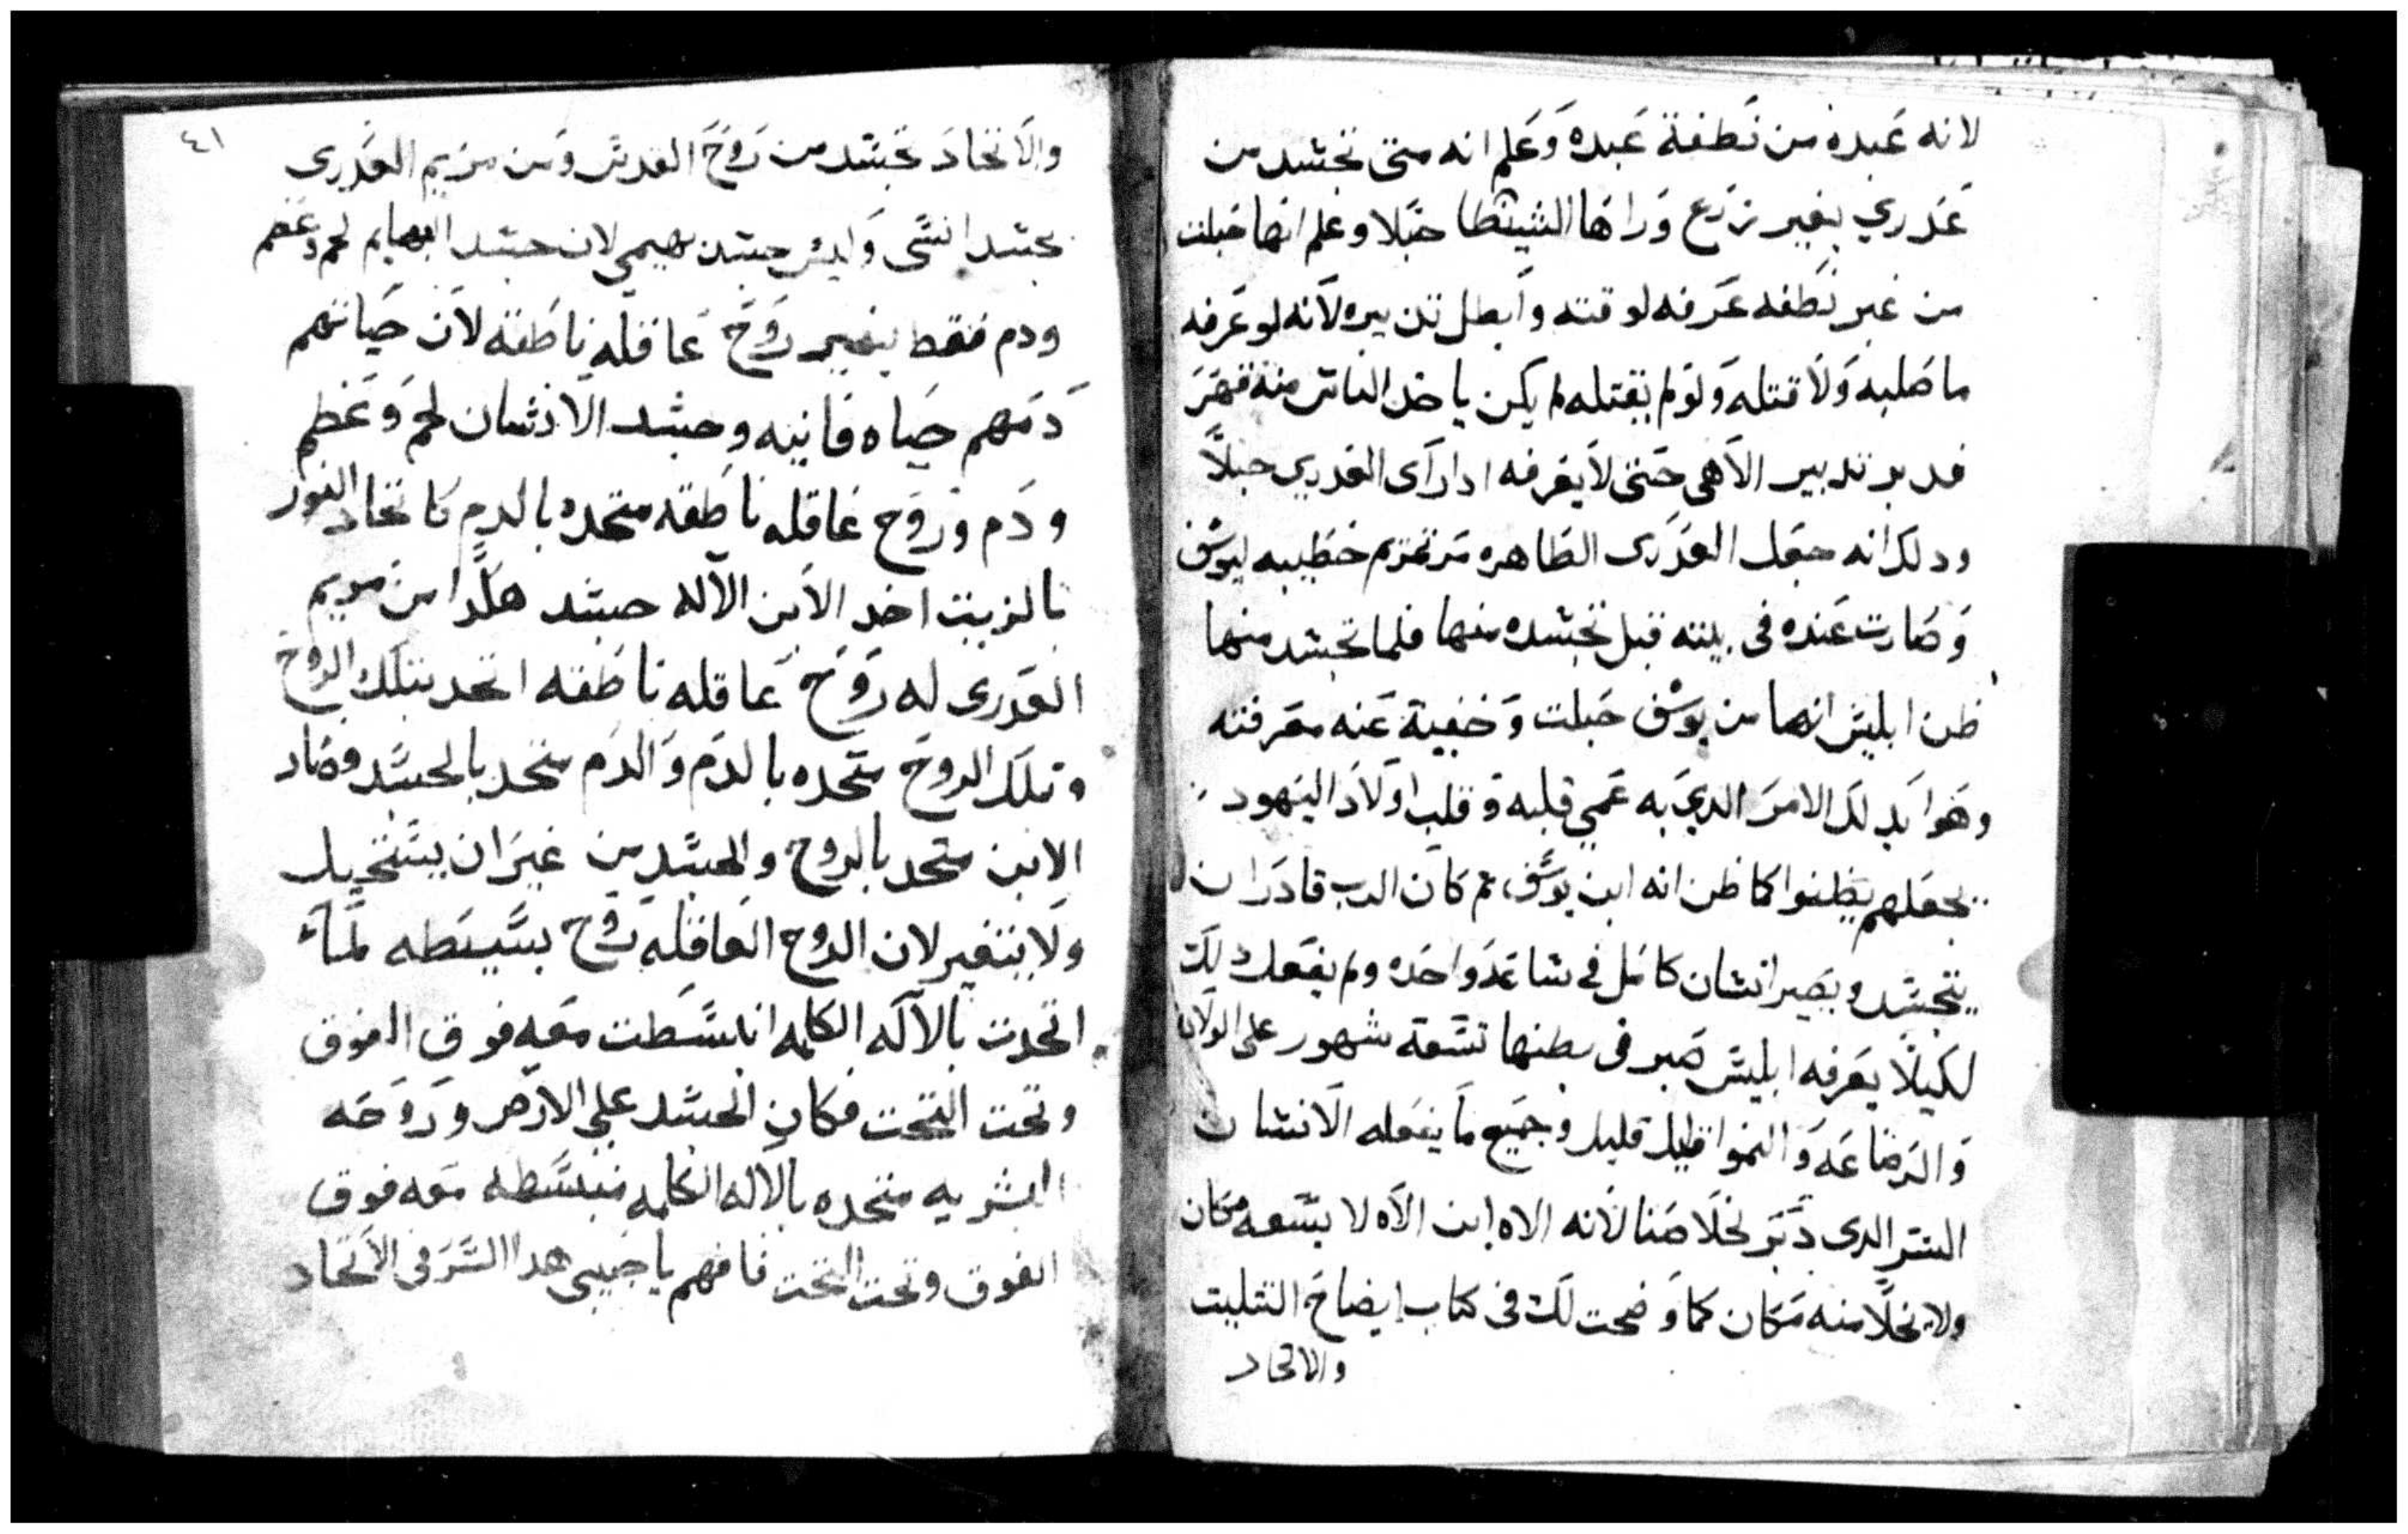 لانه عبده من نطفة عبده وعلم انه متى تجسد من
عدري بغير زرع وراها الشيطا حبلا وعلم انها حبلت
من غير نطفه عرفه لوقته وابطل تدبيره لانه لو عرفه
ما صلبه ولا قتله ولو لم يقتله لم يكن ياخد الناس منه قهر
فدبر تدبير الاهي حتى لا يعرفه ادا راى العدري حبلا
ودلك انه جعل العدرى الطاهره مرتمريم خطيبه ليوسف
وصارت عنده في بيته قبل تجسده منها فلما تجسد منها
ظن ابليس انها من يوسف حبلت وخفية عنه معرفته
وهو ابدلك الامر الدي به عمي قلبه وقلب اولاد اليهود
بجعلهم يظنوا كما ظن انه ابن يوسف، ثم كان الرب قادر ان
يتجسد ويصير انسان كامل في ساعة واحده ولم يفعل دلك
لكيلا يعرفه ابليس صبر في بطنها تسعة شهور على الولاد
والرضاعه والنموا قليل قليل وجميع ما يفعله الانسان
الستر الدي دبر لخلاصنا لانه الاه ابن الاه لا يسعه مكان
ولا يخلا منه مكان كما وضحت لك في كتاب إيضاح التتليت
والاتحاد
٤١
والاتحاد تجسد من روح القدس ومن مريم العدرى
بجسد انسى وليس جسد بهيمي لان جسد البهايم لحم وعضم
ودم فقط بغير روح عاقله ناطقه لان حياتهم
دمهم حياه فانيه وجسد الانسان لحم وعظم
ودم وروح عاقله ناطقه متحده بالدم كاتحاد النور
بالزيت اخد الابن الاله جسد هكدا من مريم
العدرى له روح عاقله ناطقه اتحد بتلك الروح
وتلك الروح متحده بالدم والدم متحد بالجسد وصار
الابن متحد بالروح والجسد من غير ان يستحيل
ولا يتغير لان الروح العاقله روح بسيطه لما
اتحدت بالاله الكلمه انبسطت معه فوق الفوق
وتحت التحت فكان الجسد على الارض وروحه
البشريه متحده بالاله الكلمه منبسطه معه فوق
الفوق وتحت التحت فافهم يا حبيبي هدا السر في الاتحاد